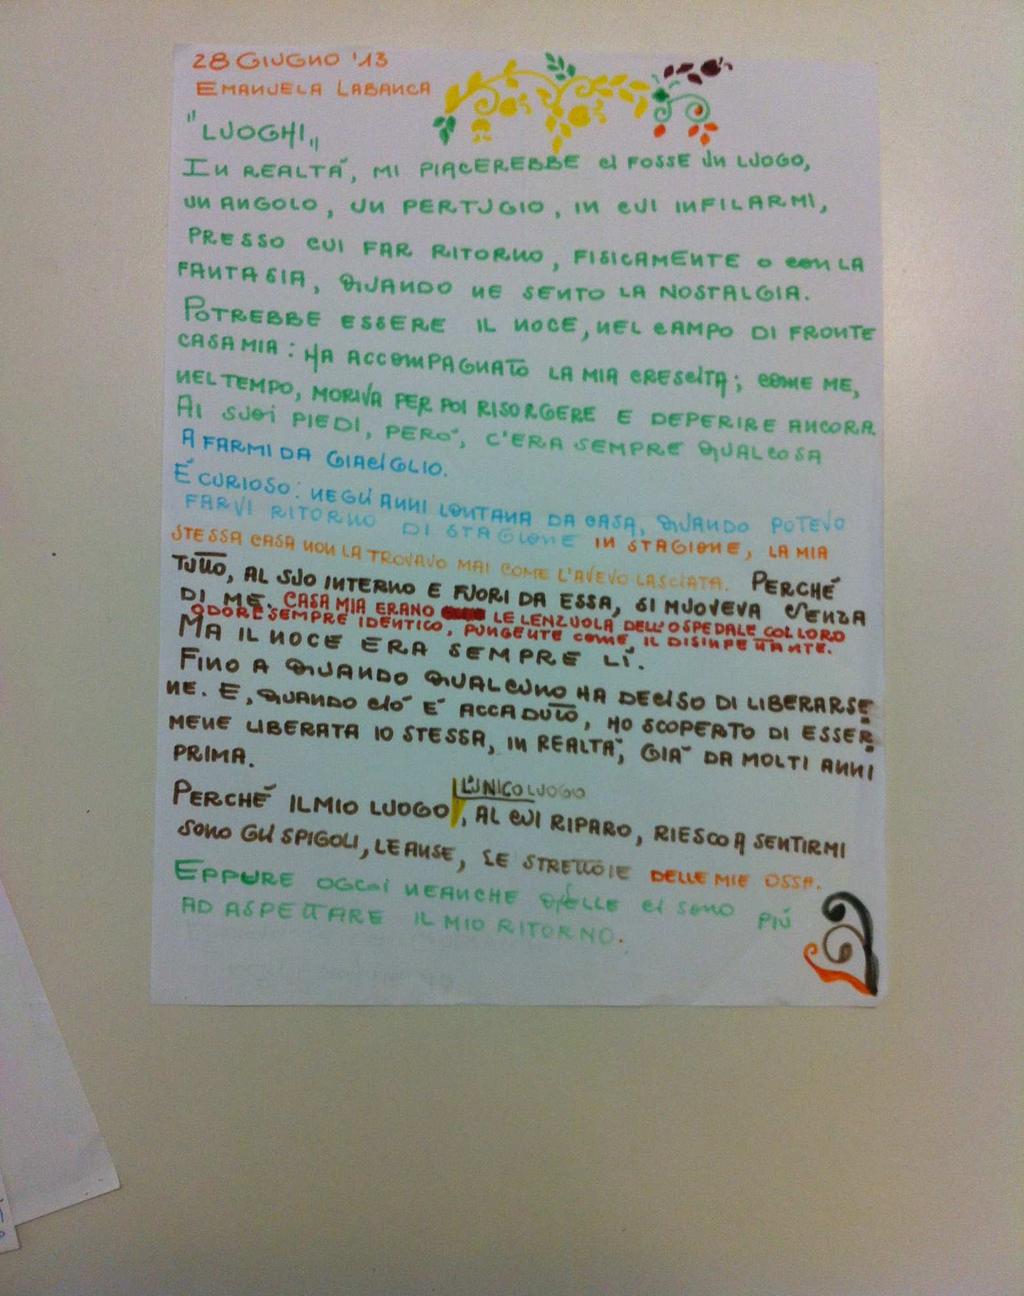 28 GIUGNO '13
EMANUELA LABANCA
"LUOGHI"
IN REALTÀ, MI PIACEREBBE CI FOSSE UN LUOGO,
UN ANGOLO, UN PERTUGIO, IN CUI INFILARMI,
PRESSO CUI FAR RITORNO, FISICAMENTE O CON LA
FANTASIA, QUANDO NE SENTO LA NOSTALGIA.
POTREBBE ESSERE IL NOCE, NEL CAMPO DI FRONTE
CASA MIA: HA ACCOMPAGNATO LA MIA CRESCITA; COME ME,
NEL TEMPO, MORIVA PER POI RISORGERE E DEPERIRE ANCORA.
AI SUOI PIEDI, PERÒ, C'ERA SEMPRE QUALCOSA
A FARMI DA GIACIGLIO.
È CURIOSO: NEGLI ANNI LONTANA DA CASA, QUANDO POTEVO
FARVI RITORNO DI STAGIONE IN STAGIONE, LA MIA
STESSA CASA NON LA TROVAVO MAI COME L'AVEVO LASCIATA. PERCHÉ
TUTTO, AL SUO INTERNO E FUORI DA ESSA, SI MUOVEVA SENZA
DI ME. CASA MIA ERANO LE LENZUOLA DELL'OSPEDALE COL LORO
ODORE SEMPRE IDENTICO, PUNGENTE COME IL DISINFETTANTE.
MA IL NOCE ERA SEMPRE LÌ.
FINO A QUANDO QUALCUNO HA DECISO DI LIBERARSE
NE. E, QUANDO CIÒ È ACCADUTO, HO SCOPERTO DI ESSER-
MENE LIBERATA IO STESSA, IN REALTÀ, GIÀ DA MOLTI ANNI
PRIMA.
L'UNICO LUOGO
PERCHÉ IL MIO LUOGO, AL CUI RIPARO, RIESCO A SENTIRMI
SONO GLI SPIGOLI, LE ANSE, LE STRETTOIE DELLE MIE OSSA.
EPPURE OGGI NEANCHE QUELLE CI SONO PIÙ
AD ASPETTARE IL MIO RITORNO.